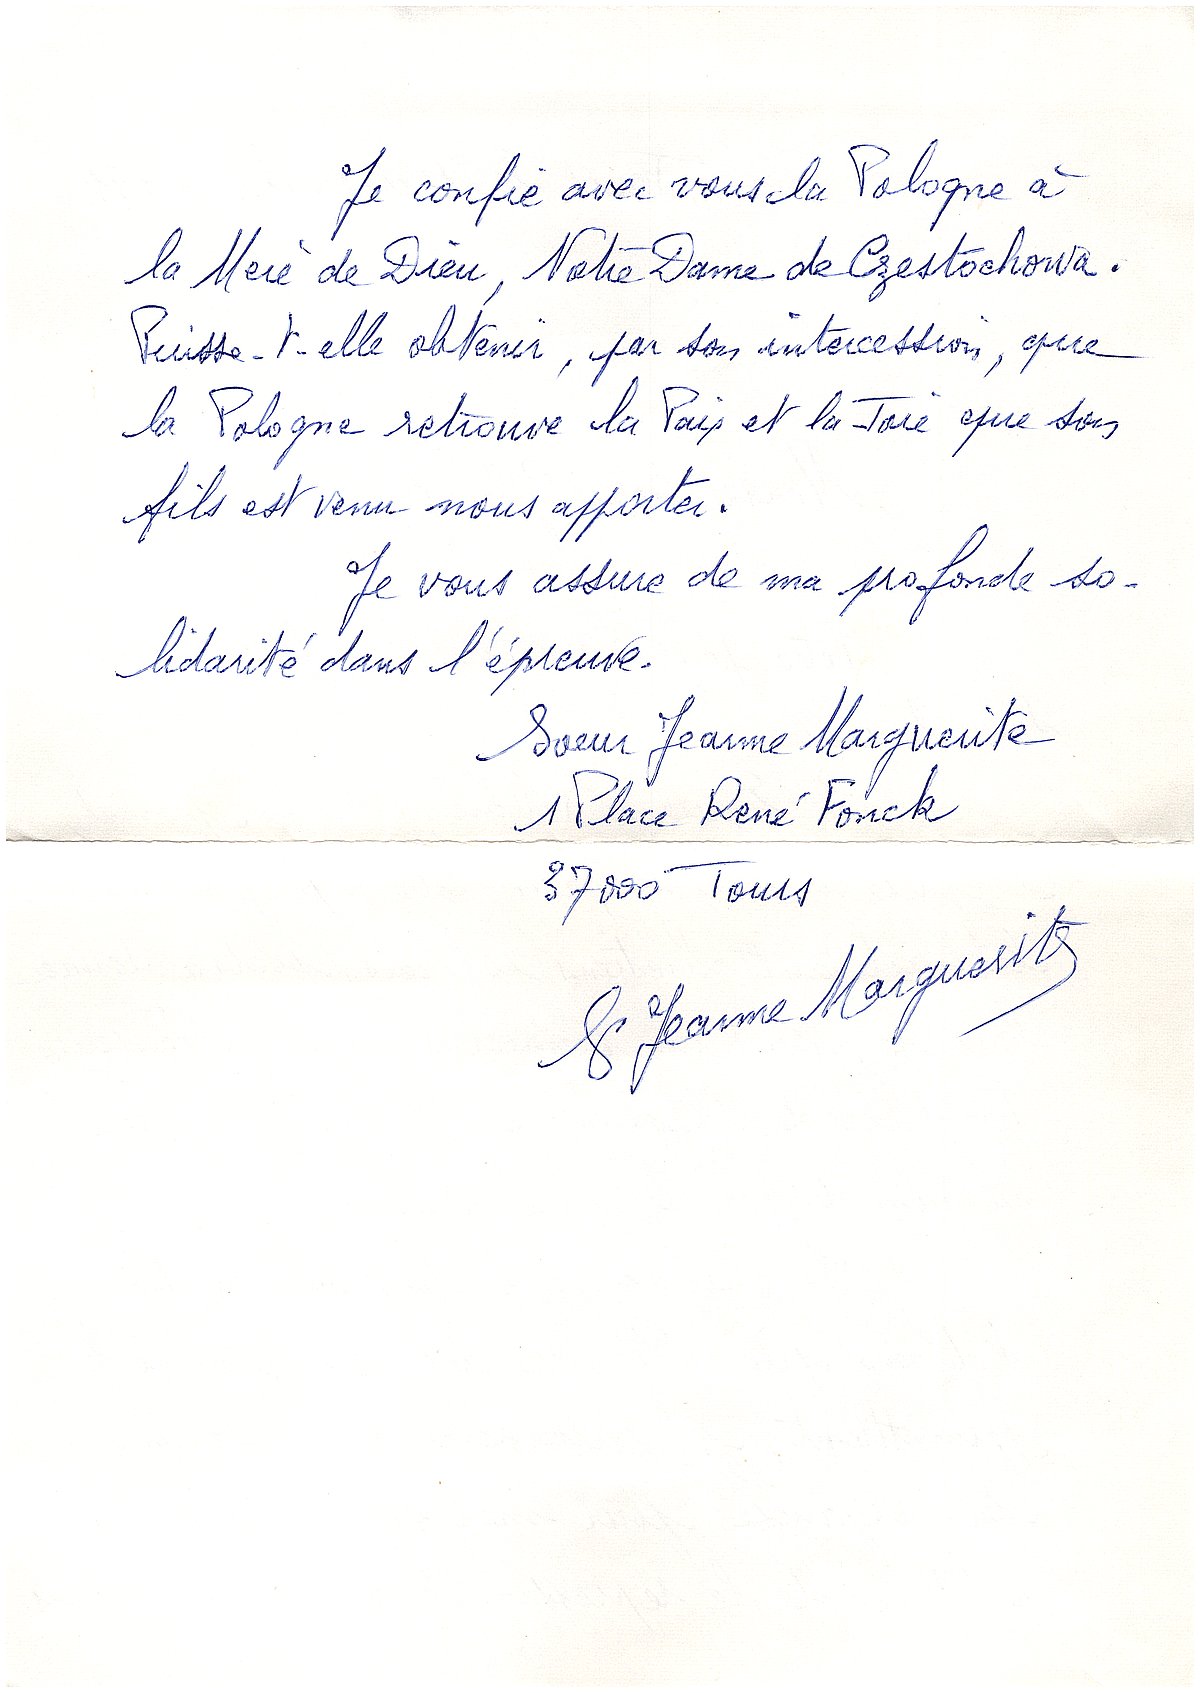 Je confie avec vous la Pologne à
la Mère de Dieu, Notre Dame de Czestochowa.
Puisse-t-elle obtenir, par son intercession, que
la Pologne retrouve la Paix et la Joie que son
fils est venu nous apporter.
Je vous assure de ma profonde so-
lidarité dans l'épreuve.
Soeur Jeanne Marguerite
1 Place René Fonck
37000 Tours
Sr Jeanne Marguerite